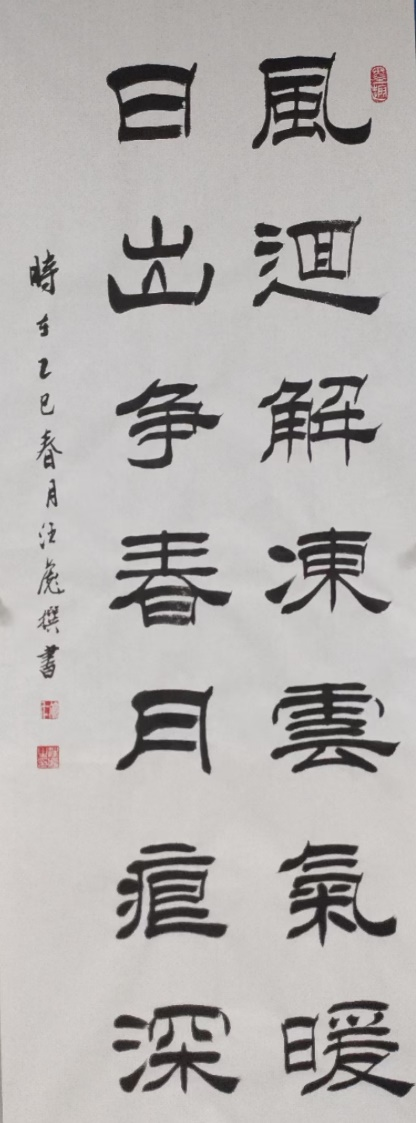 風迴解凍雲氣暖
日出争春月痕深
時在乙巳春月汪彪撰書